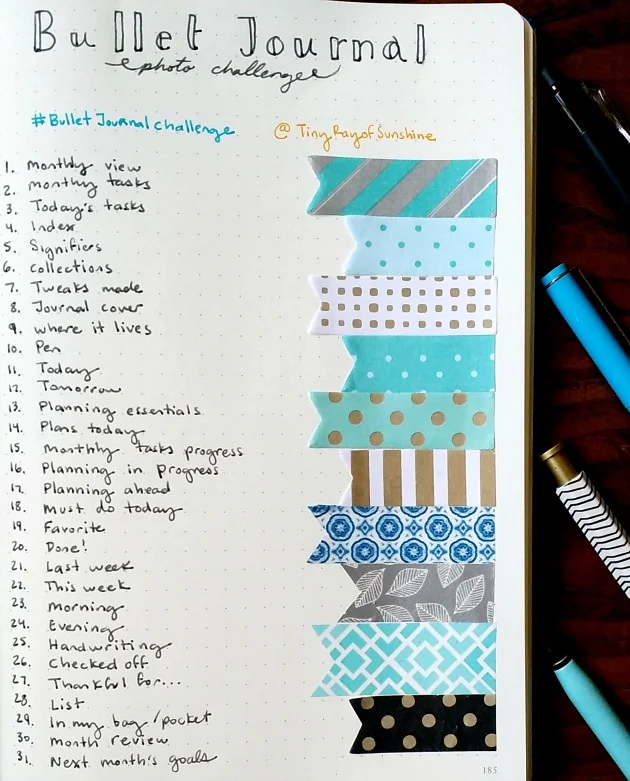 Bullet Journal
photo challenge
#BulletJournalchallenge @TinyRayofSunshine
1. monthly view
2. monthly tasks
3. Today's tasks
4. Index
5. Signifiers
6. collections
7. Tweaks made
8. Journal cover
9. where it lives
10. Pen
11. Today
12. Tomorrow
13. Planning essentials
14. Plans today
15. monthly tasks progress
16. Planning in progress
17. Planning ahead
18. Must do today
19. Favorite
20. Done!
21. Last week
22. This week
23. morning
24. Evening
25. Handwriting
26. Checked off
27. Thankful for...
28. List
29. In my bag/pocket
30. month review
31. Next month's goals
185